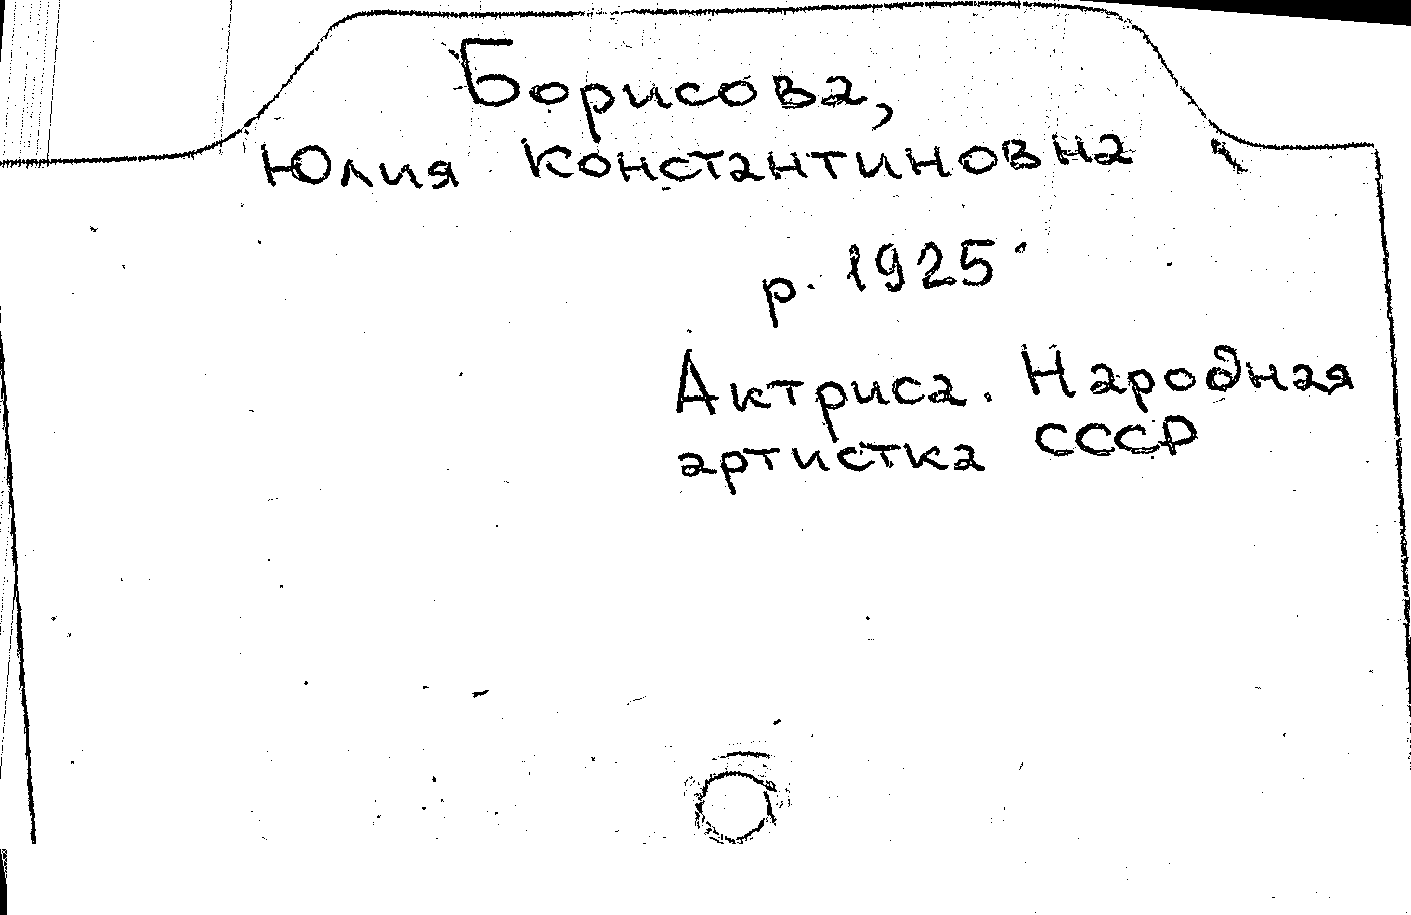 Борисова,
Юлия Константиновна
р. 1925
Актриса. Народная
артистка СССР